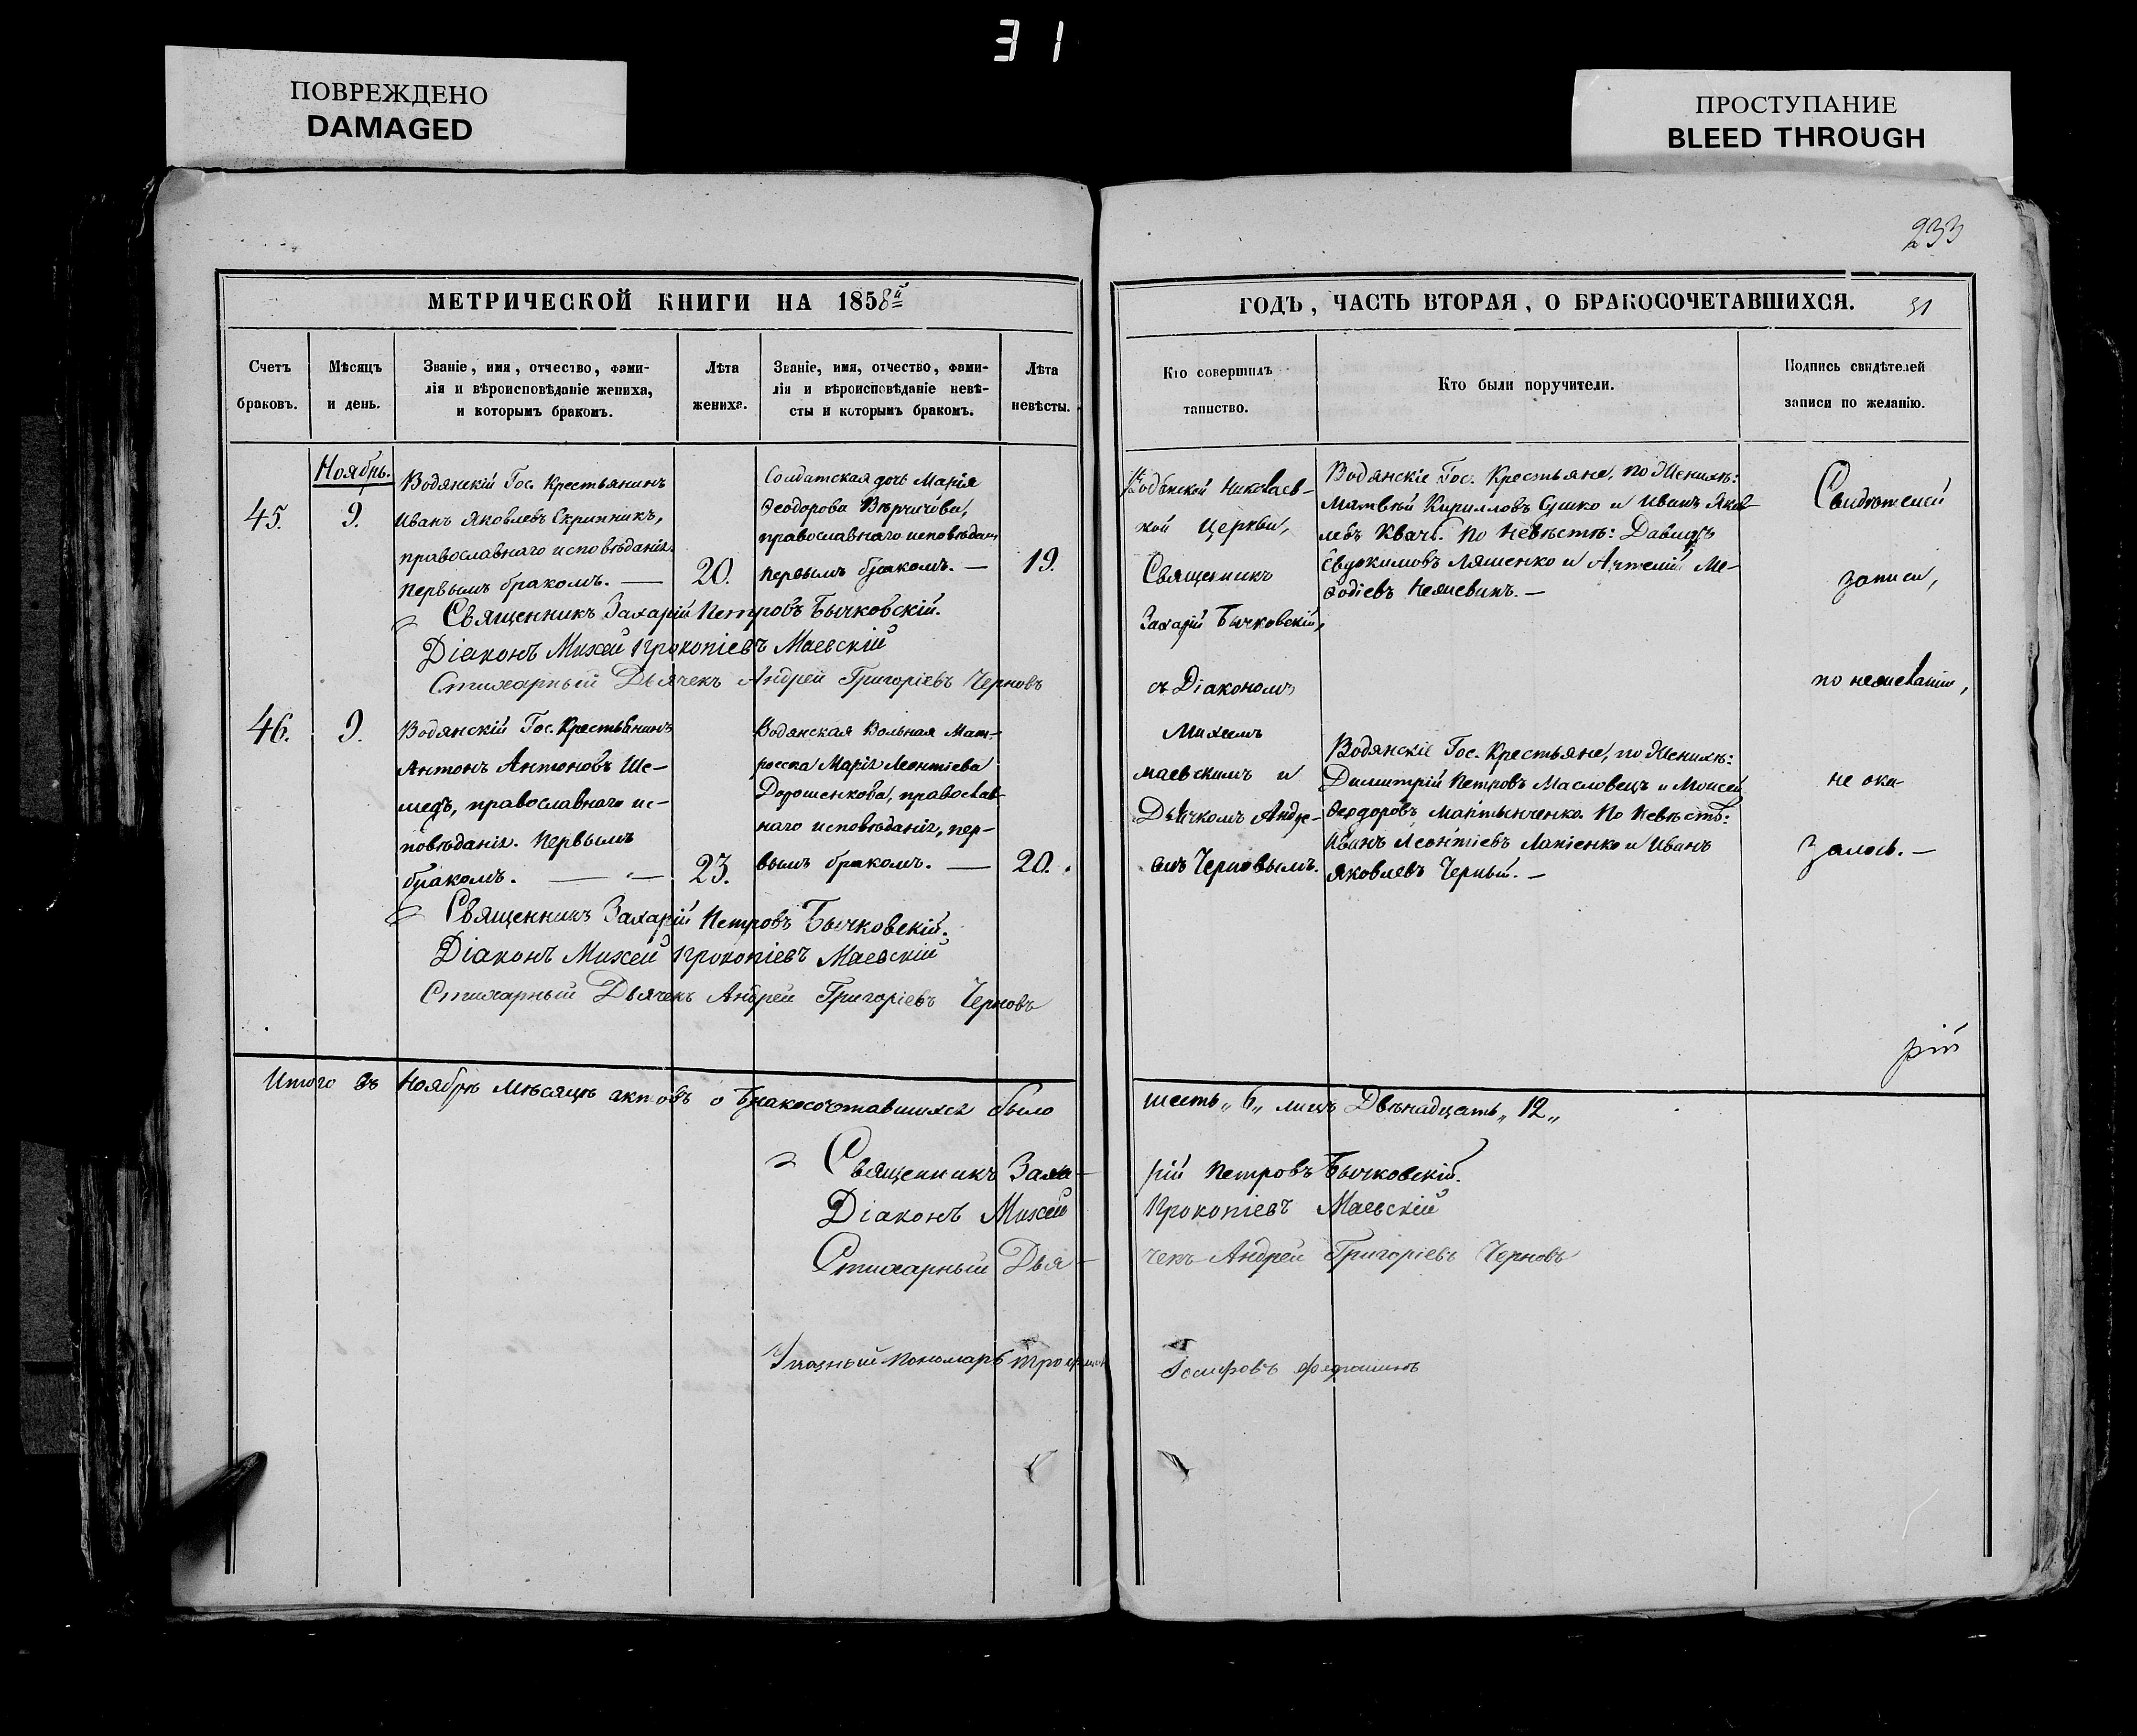 31
ПОВРЕЖДЕНО
DAMAGED
ПРОСТУПАНИЕ
BLEED THROUGH
233
МЕТРИЧЕСКОЙ КНИГИ НА 1858й
ГОДЪ, ЧАСТЬ ВТОРАЯ, О БРАКОСОЧЕТАВШИХСЯ.
31
Счетъ
браковъ.
Мѣсяцъ
и день.
Званіе, имя, отчество, фами-
лія и вѣроисповѣданіе жениха,
и которымъ бракомъ.
Лѣта
жениха.
Званіе, имя, отчество, фами-
лія и вѣроисповѣданіе невѣ-
сты и которымъ бракомъ.
Лѣта
невѣсты.
Кто совершилъ
таинство.
Кто были поручители.
Подпись свидѣтелей
записи по желанію.
Ноябрь.
45.
9.
Водянскій Гос. Крестьянинъ
Иванъ Яковлевъ Скрипникъ,
православнаго исповѣданія.
Первымъ бракомъ. —
20.
Солдатская дочь Марія
Ѳеодорова
православнаго исповѣдан.
первымъ бракомъ. —
19.
Священникъ Захарій Петровъ Бычковскій.
Діаконъ Михей Прокопіевъ Маевскій
Стихарный Дьячекъ Андрей Григоріевъ Черновъ
46.
9.
Водянскій Гос. Крестьянинъ
Антонъ Антоновъ Ше-
медъ, православнаго ис-
повѣданія. Первымъ
бракомъ. —
23.
Водянская Вольная Мат-
росска Марія Леонтіева
Дорошенкова, православ-
наго исповѣданія, пер-
вымъ бракомъ. —
20.
Священникъ Захарій Петровъ Бычковскій.
Діаконъ Михей Прокопіевъ Маевскій
Стихарный Дьячекъ Андрей Григоріевъ Черновъ
Водянской Николаев-
кой Церкви,
Священникъ
Захарій Бычковскій,
съ Діакономъ
Михеемъ
Маевскимъ и
Дьячкомъ Андре-
емъ Черновымъ.
Водянскіе Гос. Крестьяне, по Женихѣ:
Матвѣй Кирилловъ Сушко и Иванъ Яков-
левъ Квачъ. По Невѣстѣ: Давидъ
Евдокимовъ Ляшенко и Артемій Ме-
ѳодіевъ
Водянскіе Гос. Крестьяне, по Женихѣ:
Димитрій Петровъ Масловецъ и Моисей
Ѳеодоровъ Мартынченко. По Невѣстѣ:
Иванъ Леонтіевъ Лапіенко и Иванъ
Яковлевъ Черный. —
Свидѣтелей
записи,
по желанію,
не ока-
залось. —
рій
Итого въ Ноябрѣ Мѣсяцѣ актовъ о Бракосочетавшихся было шесть „6„ лицъ Двѣнадцать „12„
Священникъ Заха- рій Петровъ Бычковскій.
Діаконъ Михей Прокопіевъ Маевскій
Стихарный Дья- чекъ Андрей Григоріевъ Черновъ
Пономарь Іосифовъ